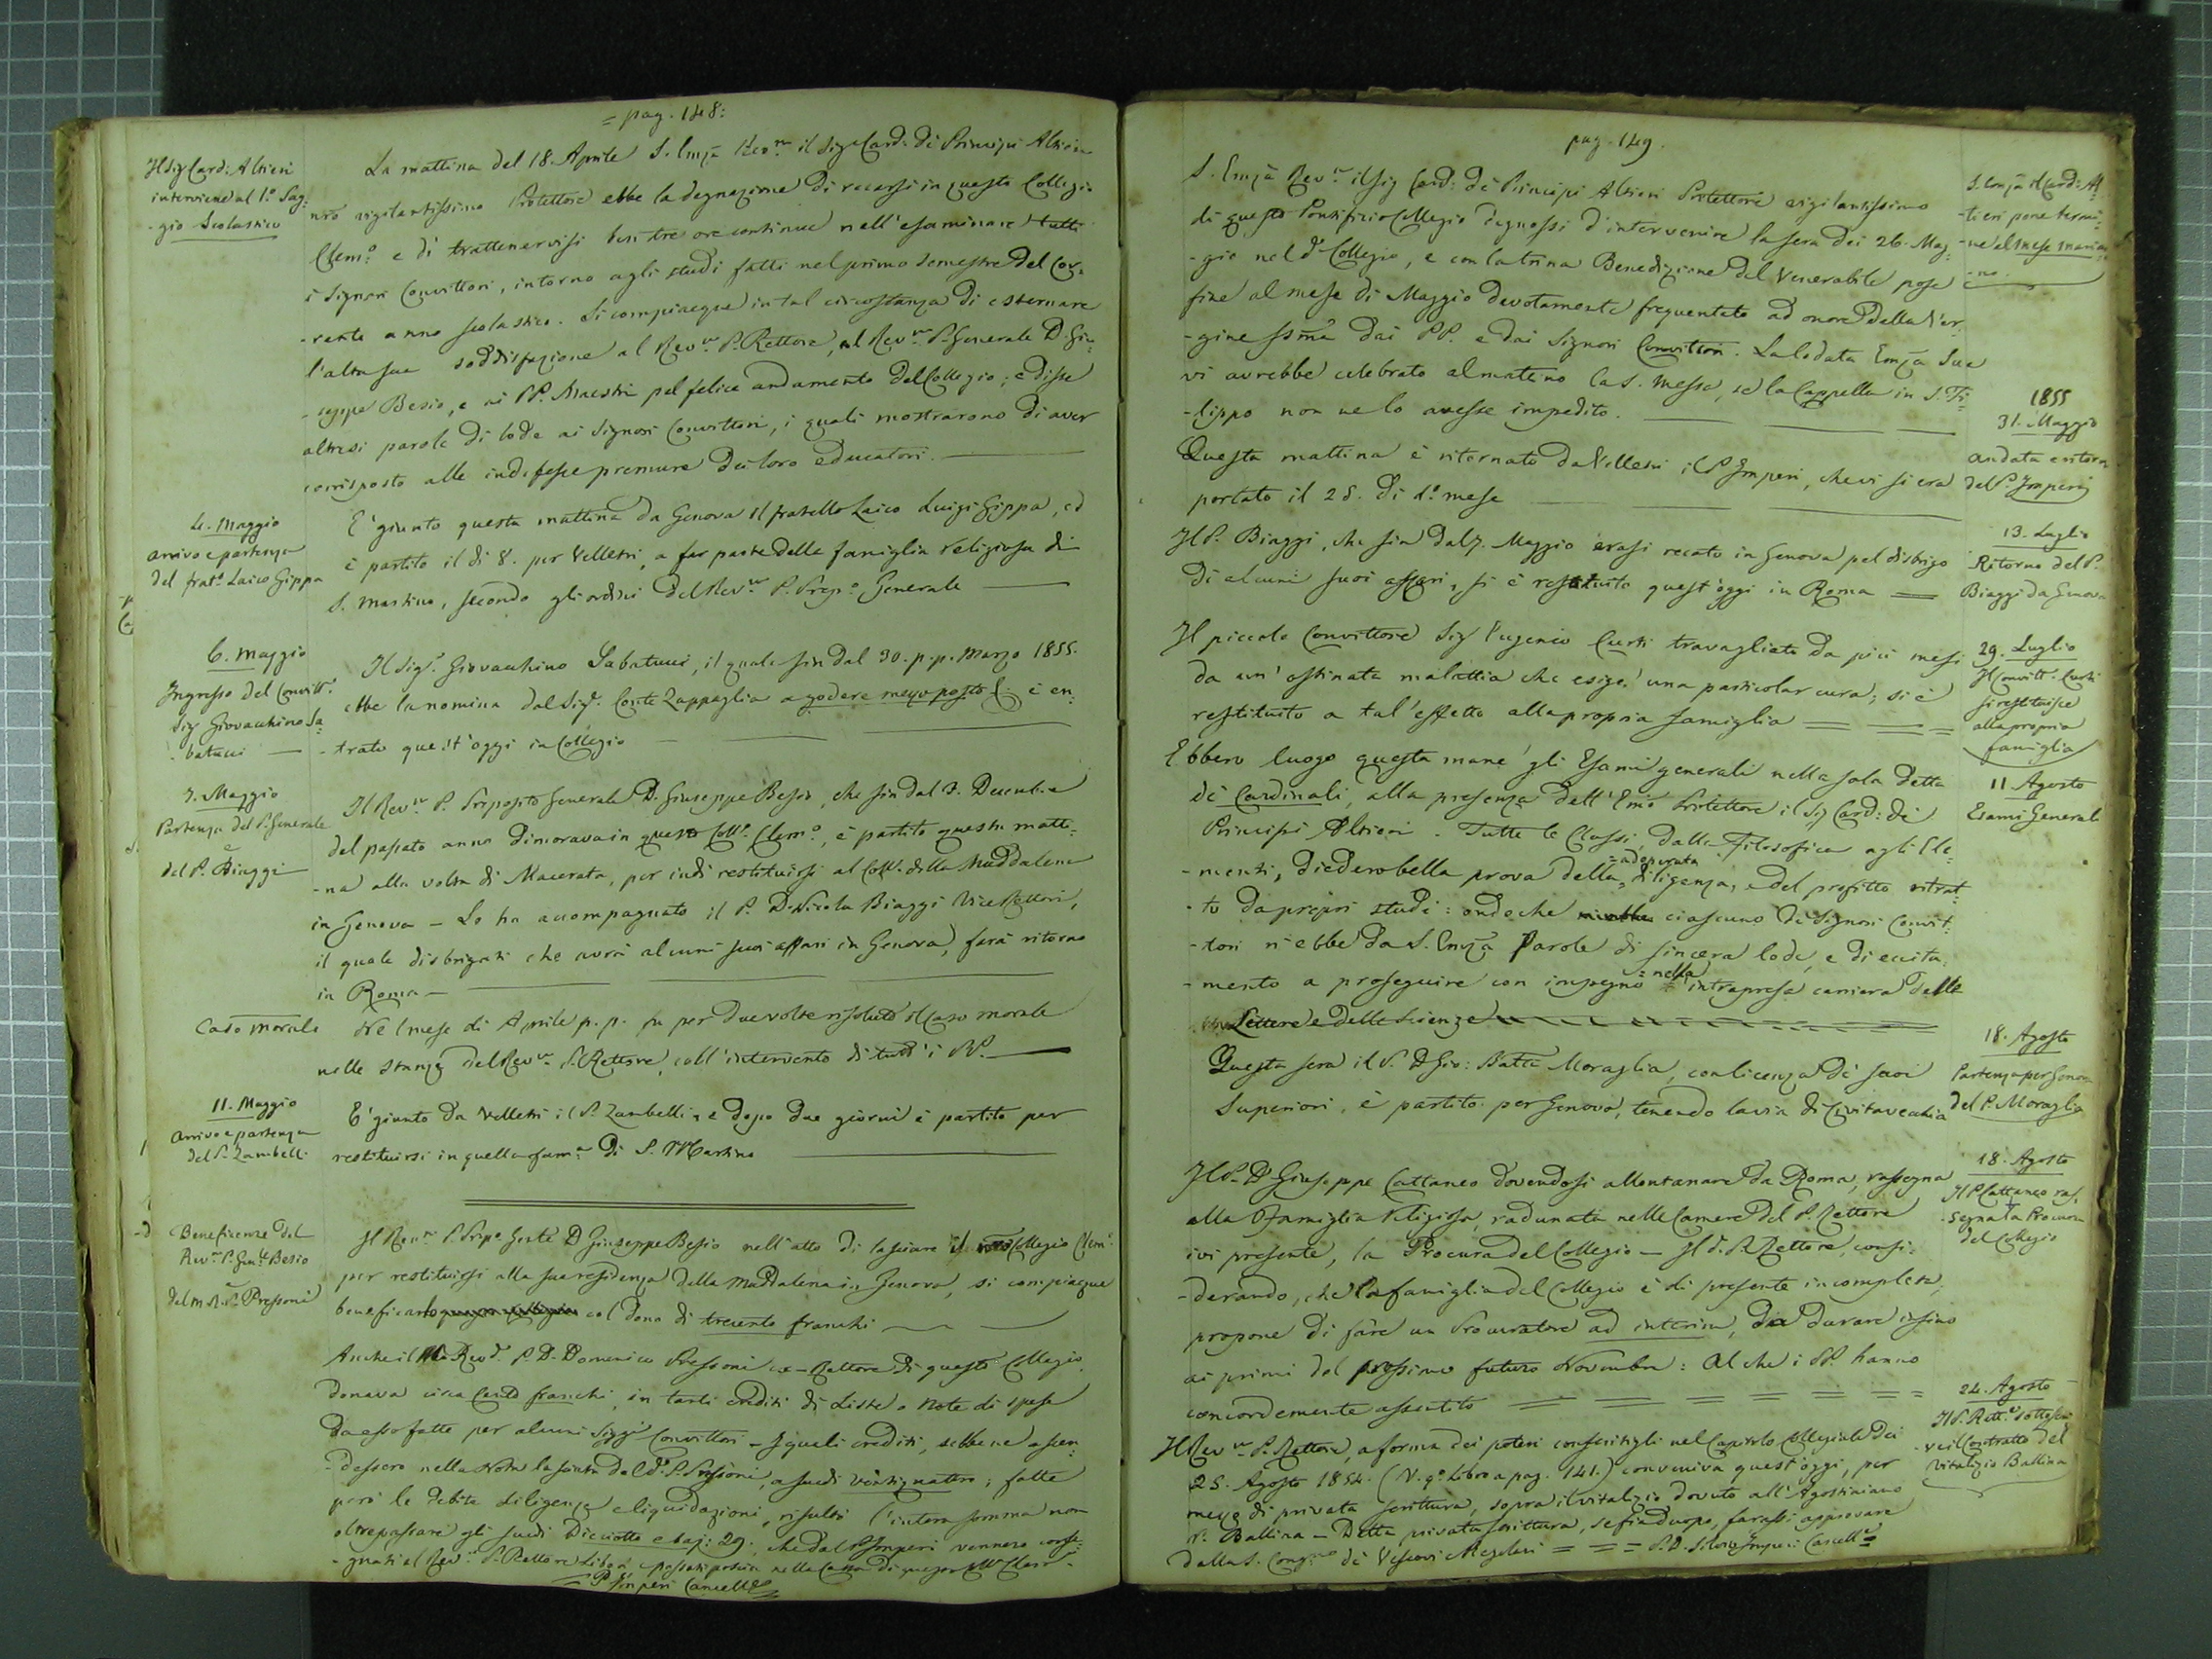 = pag. 148:
Il Sig Card: Altieri
interviene al 1.° Sag-
-gio Scolastico
La mattina del 18. Aprile S. Emza Revma il Sig Card: de Principi Altieri
nro vigilantissimo Protettore ebbe la degnazione di recarsi in questo Collegio
Clem.° e di trattenervisi ben tre ore continue nell'esaminare tutti
i Signori Convittori, intorno agli studi fatti nel primo semestre del Cor-
-rente anno scolastico. Si compiacque in tal circostanza di esternare
l'alta sua soddisfazione al Rev.mo P. Rettore, al Rev.mo P. Generale D. Giu-
-seppe Besio, e ai PP. Maestri pel felice andamento del Collegio; e disse
altresì parole di lode ai Signori Convittori, i quali mostrarono di aver
corrisposto alle indefesse premure dei loro educatori.
4. Maggio
arrivo e partenza
del frat.° Laico Gippa
E' giunto questa mattina da Genova il fratello Laico Luigi Gippa, ed
è partito il dì 8. per Velletri, a far parte della famiglia religiosa di
S. Martino, secondo gli ordini del Rev.mo P. Prep.° Generale
6. Maggio
Ingresso del Convitt.e
Sig Giovacchino Sa-
-batucci
Il Sig.r Giovacchino Sabatucci, il quale fin dal 30. p.p. Marzo 1855.
ebbe la nomina dal Sig.r Conte Zappaglia a godere mezzo posto è en-
-trato quest'oggi in Collegio
7. Maggio
Partenza del P. Generale
e
del P. Biaggi
Il Rev.mo P. Preposito Generale D. Giuseppe Besio, che fin dal 3. Decembre
del passato anno dimorava in questo Coll.° Clem.°, è partito questa matti-
-na alla volta di Macerata, per indi restituirsi al Coll. della Maddalena
in Genova - Lo ha accompagnato il P. D. Nicola Biaggi Vice Rettore,
il quale disbrigati che avrà alcuni suoi affari in Genova, farà ritorno
in Roma -
Caso morale
Nel mese di Aprile p.p. fu per due volte risoluto il Caso morale
nelle stanze del Rev.mo P. Rettore, coll'intervento di tutti i PP.
11. Maggio
arrivo e partenza
del P. Zambelli
E' giunto da Velletri il P. Zambelli, e dopo due giorni è partito per
restituirsi in quella fam.a di S. Martino
Beneficenze del
Rev.mo P. Gen.le Besio
e
del M.R. P. Pressoni
Il Rev.mo P. Prep.° Gen.le D. Giuseppe Besio nell'atto di lasciare il nro Collegio Clem.°
per restituirsi alla sua residenza della Maddalena in Genova, si compiacque
beneficarlo col dono di trecento franchi
Anche il M. Rev.do P. D. Domenico Pressoni ex-Rettore di questo Collegio,
donava circa cento franchi, in tanti crediti di Liste o Note di spese
da esso fatte per alcuni Sigg.i Convittori - I quali crediti, sebbene ascen-
-dessero nella Nota lasciata dal d.° P. Pressoni, a scudi ventiquattro; fatte
però le debite diligenze e liquidazioni, risultò l'intera somma non
oltrepassare gli scudi Dieciotto e baj: 29., che dal P. Imperi vennero conse-
-gnati al Rev.mo P. Rettore Libois, e passati poscia nella Cassa di questo Coll.° Clem.°
= P. Imperi Cancell.e
pag. 149.
S. Emza il Card: Al-
-tieri pone termi-
-ne al mese maria-
-no.
S. Emza Rev.ma il Sig Card: de Principi Altieri Protettore vigilantissimo
di questo Pontificio Collegio degnossi d'intervenire la sera dei 26. Mag-
-gio nel d.° Collegio, e con la trina Benedizione del Venerabile pose
fine al mese di Maggio devotamente frequentato ad onore della Ver-
-gine SSma dai PP. e dai Signori Convittori. La lodata Emza Sua
vi avrebbe celebrato al mattino la S. Messa, se la Cappella in S. Fi-
-lippo non ne lo avesse impedito.
1855
31. Maggio
andata e ritorno
del P. Imperi
Questa mattina è ritornato da Velletri il P. Imperi, che vi si era
portato il 28. di d.° mese
13. Luglio
Ritorno del P.
Biaggi da Genova
Il P. Biaggi, che fin dal 7. Maggio erasi recato in Genova pel disbrigo
di alcuni suoi affari, si è restituito quest'oggi in Roma
29. Luglio
Il Convitt. Curti
si restituisce
alla propria
famiglia
Il piccolo Convittore Sig Eugenio Curti travagliato da più mesi
da un'ostinata malattia che esige una particolar cura, si è
restituito a tal'effetto alla propria famiglia
11 Agosto
Esami Generali
Ebbero luogo questa mane gli Esami generali nella sala detta
de Cardinali, alla presenza dell'Emo Protettore il Sig Card: de
Principi Altieri. Tutte le Classi, dalla Filosofica agli Ele-
-menti, diedero bella prova della =adoperata= diligenza, e del profitto ritrat-
-to da proprj studi: ondeche ciascuno de Signori Convit-
-tori n'ebbe da S. Emza Parole di sincera lode, e di eccita-
-mento a proseguire con impegno =nella= intrapresa carriera delle
Lettere e delle Scienze
18. Agosto
Partenza per Genova
del P. Moraglia
Questa sera il P. D. Gio: Batta Moraglia, con licenza de suoi
Superiori, è partito per Genova, tenendo la via di Civitavecchia
18. Agosto
Il P. Cattaneo ras-
-segna la Procura
del Collegio
Il P. D. Giuseppe Cattaneo dovendosi allontanare da Roma, rassegna
alla Famiglia Religiosa, radunata nelle Camere del P. Rettore
ivi presente, la Procura del Collegio - Il d.° P. Rettore, consi-
-derando, che la famiglia del Collegio è di presente incompleta,
propone di fare un Procuratore ad interim, da durare insino
ai primi del prossimo futuro Novembre: Al che i PP. hanno
concordemente assentito
24. Agosto
Il P. Rett.e sottoscri-
-ve il Contratto del
Vitalizio Ballina
Il Rev.mo P. Rettore, a forma dei poteri conferitigli nel Capitolo Collegiale dei
25. Agosto 1854. (V. q.° Libro a pag. 141.) conveniva quest'oggi, per
mezzo di privata scrittura, sopra il vitalizio dovuto all'Agostiniano
P. Ballina - Detta privata scrittura, se fia d'uopo, farassi approvare
dalla S. Cong.ne de Vescovi e Regolari = = = P. D. Silvio Imperi Cancell.e